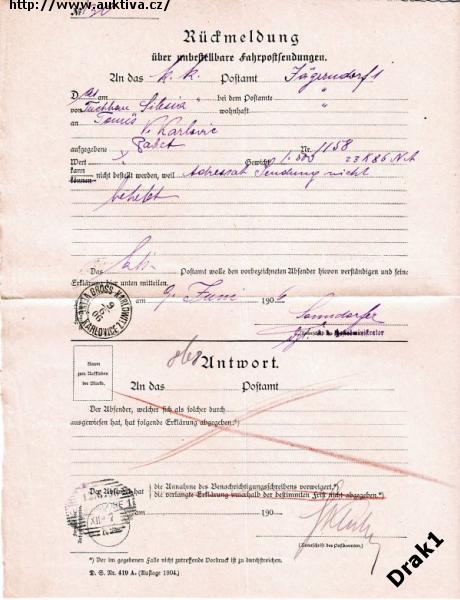 https://www.auktiva.cz/
Nr. 30
Rückmeldung
über unbestellbare Fahrpostsendungen.
An das k. k. Postamt Jägerndorf 1
D as am " bei dem Postamte "
von Tuchhau Silesia wohnhaft
an
V. Karlovic
aufgegebene Paket Nr. 1158
Wert Gewicht
kann
können nicht bestellt werden, weil Adressat Sendung nicht
behebt
Das Postamt wolle den vorbezeichneten Absender hievon verständigen und seine
Erklärung hier unten mitteilen.
am 9. Juni 1906
868 Antwort.
Raum
zum Aufkleben
der Marke.
An das Postamt
Der Absender, welcher sich als solcher durch
ausgewiesen hat, hat folgende Erklärung abgegeben:*)
Der Absender hat die Annahme des Benachrichtigungsschreibens verweigert.*)
die verlangte Erklärung innerhalb der bestimmten Frist nicht abgegeben.*)
am 190
(Unterschrift des Postbeamten.)
*) Der im gegebenen Falle nicht zutreffende Vordruck ist zu durchstreichen.
D. S. Nr. 419 A. (Auflage 1904.)
Drak1